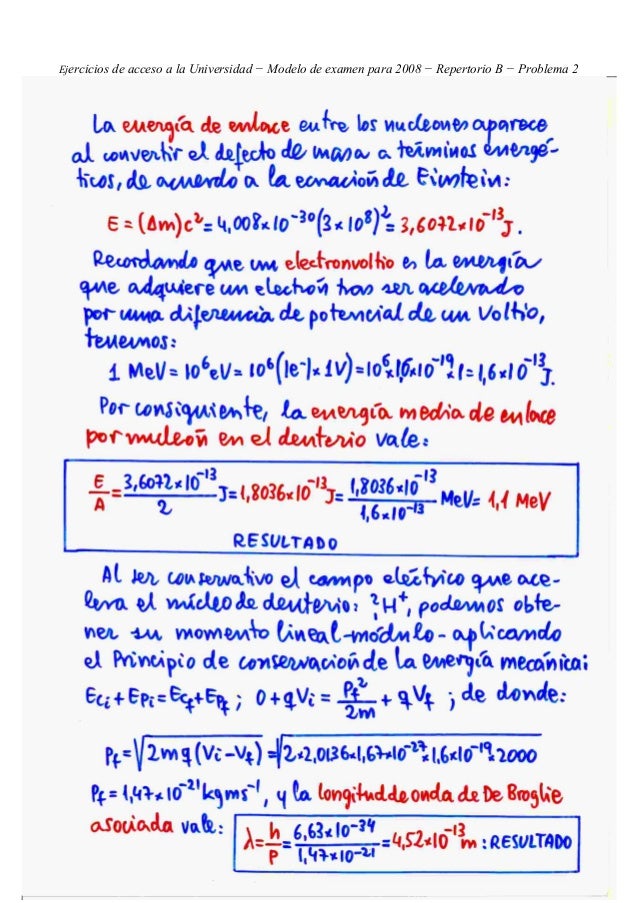 Ejercicios de acceso a la Universidad − Modelo de examen para 2008 − Repertorio B − Problema 2
La energía de enlace entre los nucleones aparece
al convertir el defecto de masa a términos energé-
ticos, de acuerdo a la ecuación de Einstein:
E = (Δm)c² = 4,008×10⁻³⁰(3×10⁸)² = 3,6072×10⁻¹³ J.
Recordando que un electronvoltio es la energía
que adquiere un electrón tras ser acelerado
por una diferencia de potencial de un Voltio,
tenemos:
1 MeV = 10⁶eV = 10⁶(1e⁻)×1V) = 10⁶×1,6×10⁻¹⁹×1 = 1,6×10⁻¹³ J.
Por consiguiente, la energía media de enlace
por nucleón en el deuterio vale:
E/A = 3,6072×10⁻¹³/2 J = 1,8036×10⁻¹³ J = 1,8036×10⁻¹³/1,6×10⁻¹³ MeV = 1,1 MeV
RESULTADO
Al ser conservativo el campo eléctrico que ace-
lera el núcleo de deuterio: ²₁H⁺, podemos obte-
ner su momento lineal -módulo- aplicando
el Principio de conservación de la energía mecánica:
Eci + EPi = Ecf + EPf ; 0 + qVi = Pf²/2m + qVf ; de donde:
Pf = √2mq(Vi−Vf) = √2×2,0136×1,67×10⁻²⁷×1,6×10⁻¹⁹×2000
Pf = 1,47×10⁻²¹ kgms⁻¹, y la longitud de onda de De Broglie
asociada vale: λ = h/P = 6,63×10⁻³⁴/1,47×10⁻²¹ = 4,52×10⁻¹³ m : RESULTADO